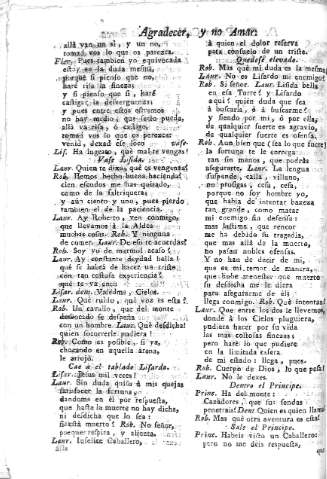 Agradecer, y no Amar.
allá van un sí, y un no,
tomad vos lo que os parezca.
Flor. Pues tambien yo equivocada
estoy en la duda mesma,
porque si pienso que no,
haré ria la finezas
y si pienso que sí, haré
castigar la desverguenza:
y pues entre estos extremos
no hay medio, que
allá va risa, ó castigo,
tomad vos lo que os parezca:
venid, dexad ese loco. vase.
Lis. Ha ingrato, qué mal te vengas!
Vase Lisida.
Laur. Quien te dixo, qué os vengastes?
Rob. Hemos hecho buena hacienda!
cien escudos me han quitado,
como de la faltriquera;
y aún ciento y uno, pues pierdo
tambien el de la paciencia.
Laur. Ay Roberto, ven conmigo,
que llevamos à la Aldea
mucho Rob. Y ninguna
de comer. Laur. De eso te acuerdas?
Rob. Soy yo de marmol acaso?
Laur. Ay constante Deydad bella!
qué se habrá de hacer un triste
con tan costosa experiencia?
que te va en
Lisar. dent. Valedme, Cielos.
Laur. Qué ruido, qué voz es esta?
Rob. Un caballo, que del monte
desbocado se despeña
con un hombre. Laur. Qué desdicha!
quien socorrerle pudiera!
Rob. Como es posible, si ya,
chocando en aquella arena,
le arrojó.
Cae a el tablado Lisardo.
Lisar. Jesus mil veces!
Laur. Sin duda quiso á mis quejas
satisfacer la fortuna,
dandome en él por respuesta,
que hasta la muerte no hay dicha,
ni desdicha que lo sea:
si está muerto? Rob. No señor,
porque respira, y alienta.
Laur. Infelice Caballero,
á quien el dolor reserva
para consuelo de un triste.
Quedase elevado.
Rob. Mas qué mi duda es la mesma?
Laur. No es Lisardo mi enemigo?
Rob. Sí señor. Laur. Lisida bella
en esa Torre! y Lisardo
aquí! quién duda que sea
á buscarla, ó á buscarme?
y siendo por mí, ó por ella,
de qualquier suerte es agravio,
de qualquier suerte es ofensa.
Rob. Aun bien que (sea lo que fuere)
la fortuna te le entrega
tan sin manos, que podrás
asegurarte. Laur. La lengua
suspende, calla, villano,
no prosigas, cesa, cesa,
porque no soy hombre yo,
que habia de intentar baxeza
tan grande, como matar
mi enemigo sin defensa:
mas lastima, que renoor
me ha debido su tragedia,
que mas allá de la muerte,
no pasan nobles ofensas.
Y no han de decir de mí,
que es mi temor de manera,
que hube menester que muerto
su desdicha me le diera
para asegurarme de él:
llega conmigo. Rob. Qué intentas?
Laur. Que entre los dos le llevemos,
donde á los Cielos pluguiera,
pudiera hacer por su vida
las mas costosas finezas:
pero haré lo que pudiere
en la limitada esfera
de mi estado: llega, pues.
Rob. Cuerpo de Dios, lo que pesa!
Laur. No le dexes.
Dentro el Principe.
Princ. Ha del monte:
Cazadores, que sus sendas
penetrais! Dent. Quien es quien llama?
Rob. Mas qué otra aventura es esta?
Sale el Principe.
Princ. Habeis visto un Caballero:
pero no me deis respuesta,
que